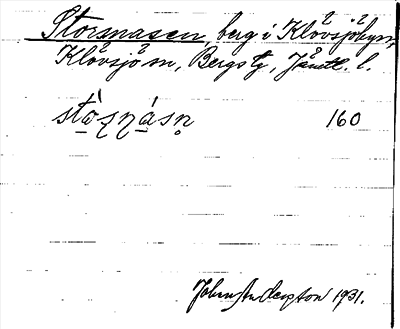 Storsnasen, berg i Klövsjöbyn,
Klövsjö sn, Bergs tg, Jämtl. l.
stò̱ʂɳá̱sn̥ 160
John Andersson 1931.